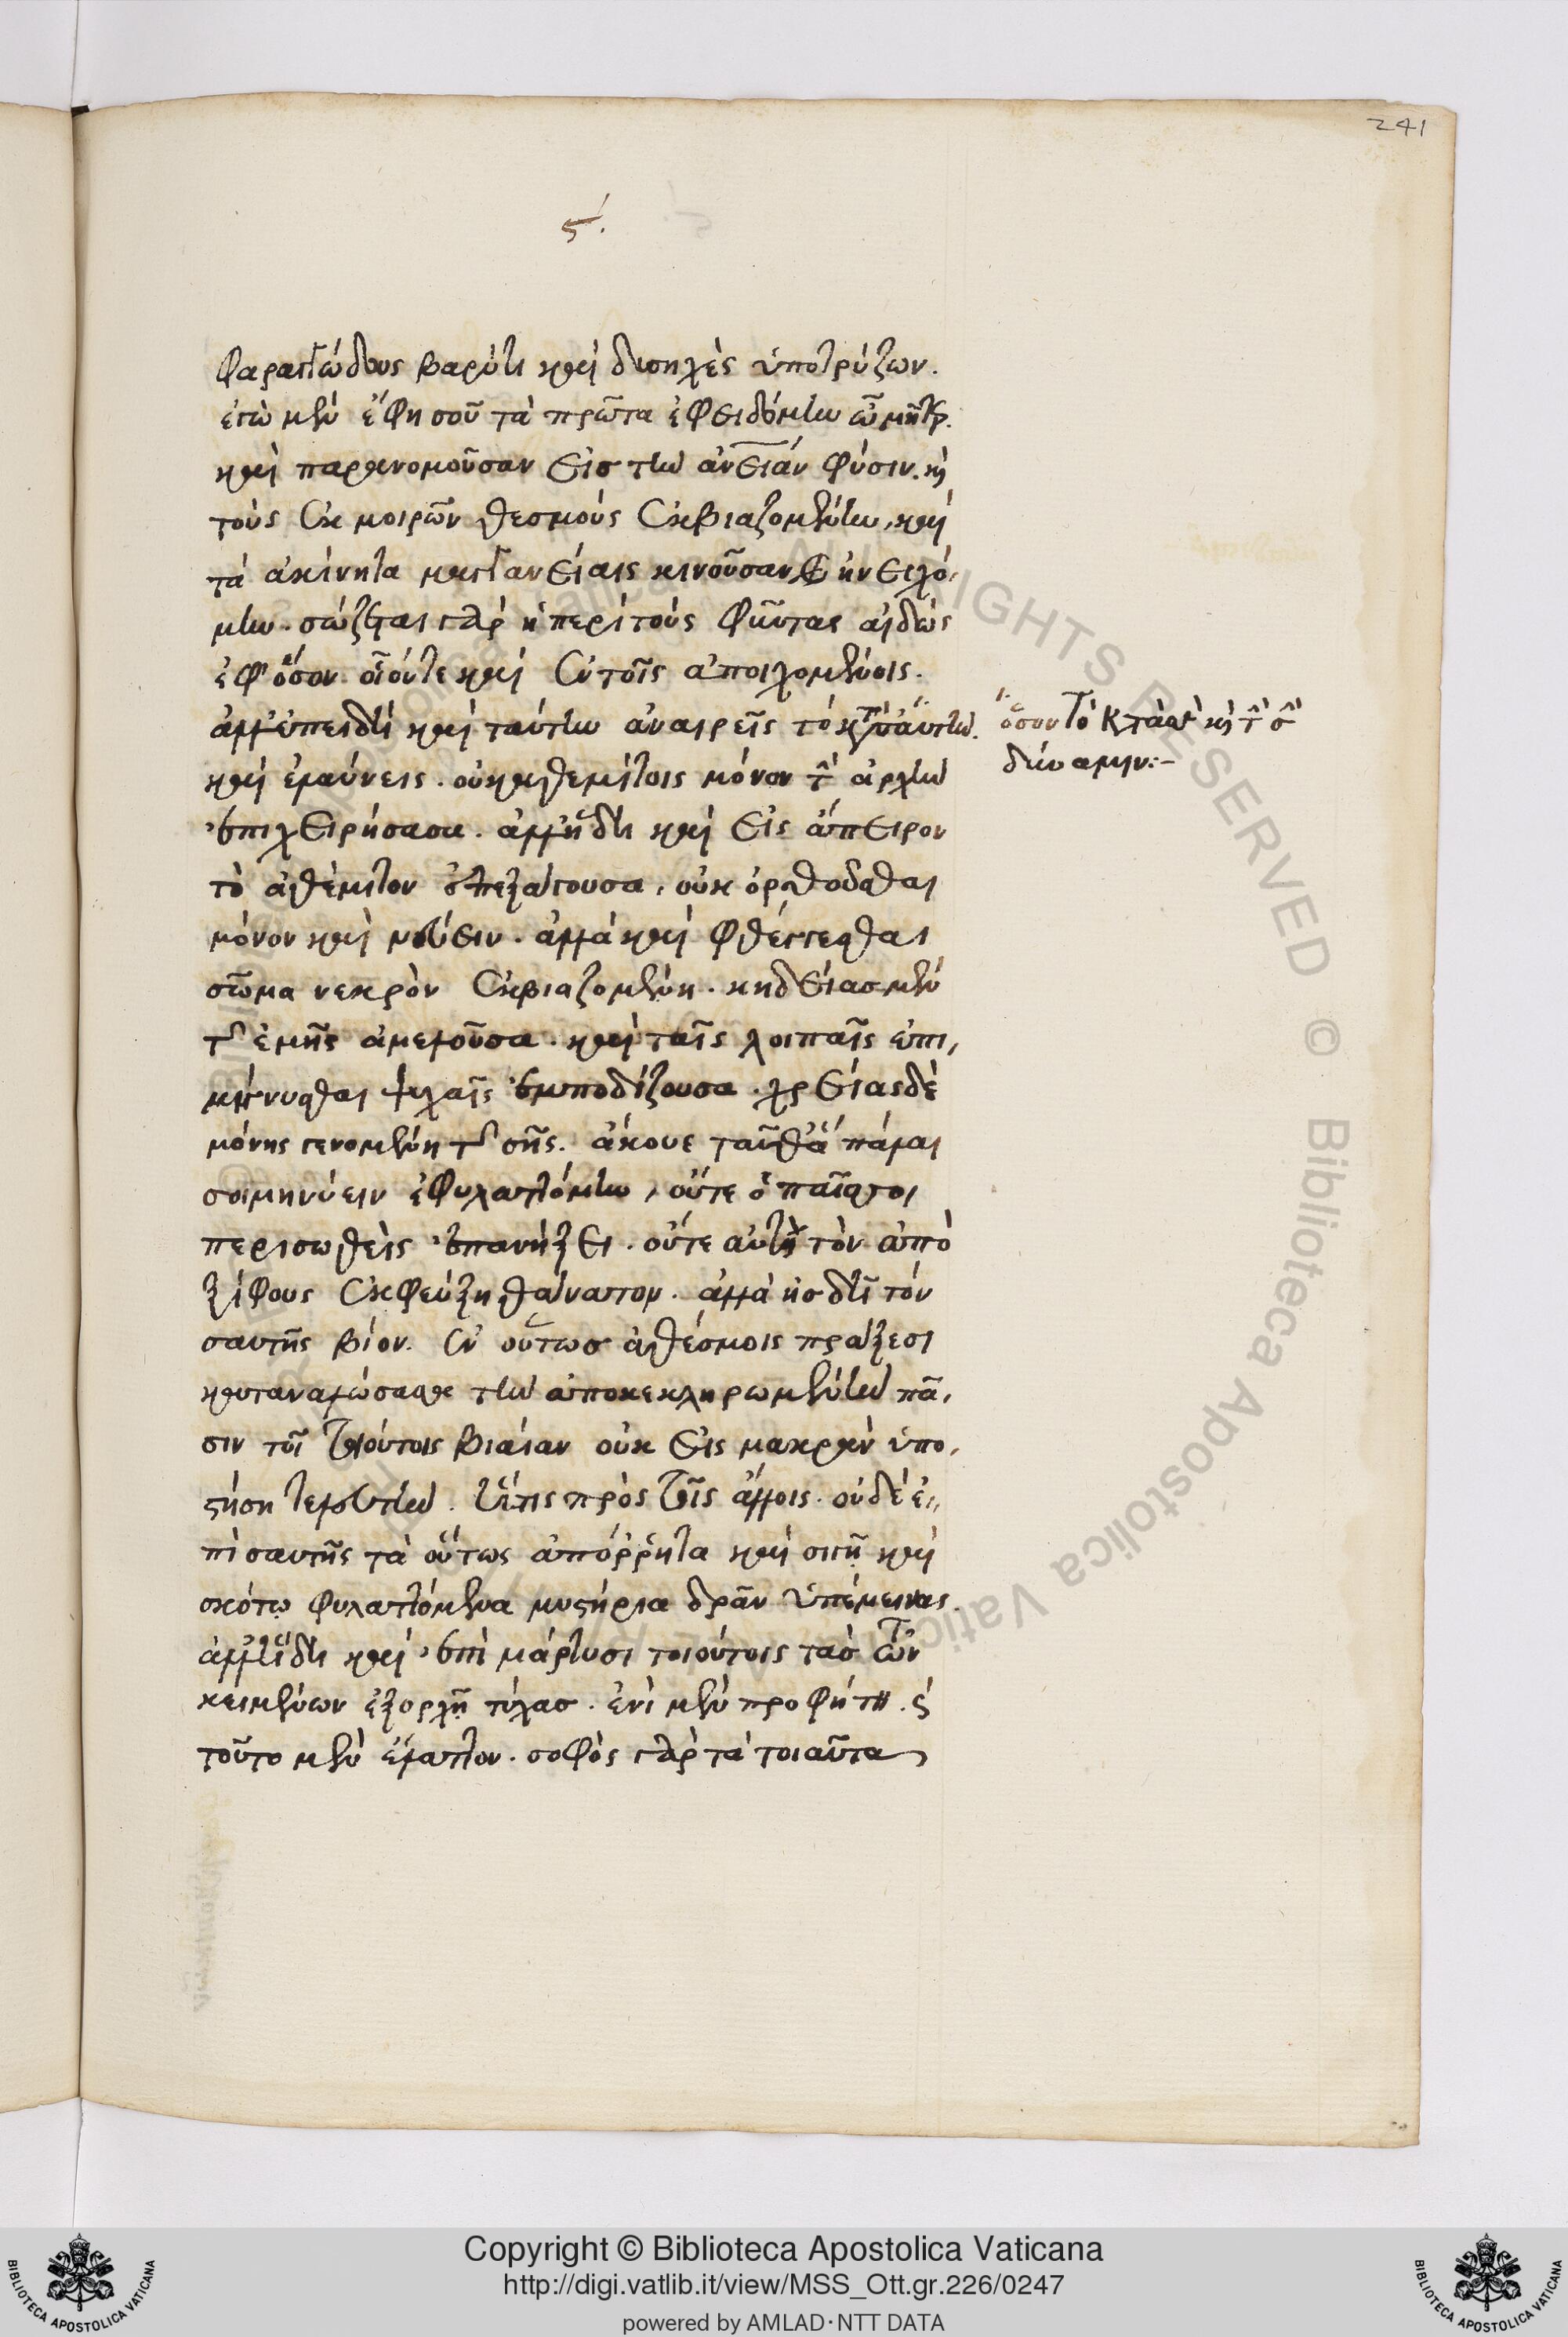 241
ϛ´.
φαραγγώδους βαρύτι καὶ δυσηχὲς ὑποτρύζων.
ἐγὼ μὲν ἔφη σοῦ τὰ πρῶτα ἐφειδόμην ὦ μῆτερ.
καὶ παρανομοῦσαν εἰς τὴν ἀνθρωπείαν φύσιν. καὶ
τοὺς ἐκ μοιρῶν θεσμοὺς ἐκβιαζομένην, καὶ
τὰ ἀκίνητα μαγγανείαις κινοῦσαν ἠνειχό-
μην. σώζεται γὰρ ἡ περὶ τοὺς φύντας αἰδὼς
ἐφ' ὅσον οἷόν τε καὶ ἐν τοῖς ἀποιχομένοις.
ἀλλ' ἐπειδὴ καὶ ταύτην ἀναιρεῖς τὸ κατὰ σαυτὴν.
ὅσον τὸ κατὰ σὲ καὶ τὴν σὴν
καὶ ἐλαύνεις. οὐκ ἀθεμίτοις μόνον τὴν ἀρχὴν
δύναμιν:-
ἐπιχειρήσασα. ἀλλ' ἤδη καὶ εἰς ἄπειρον
τὸ ἀθέμιτον ἐπεξάγουσα, οὐκ ὀρθοῦσθαι
μόνον καὶ νεύειν. ἀλλὰ καὶ φθέγγεσθαι
σῶμα νεκρὸν ἐκβιαζομένη. κηδείας μὲν
τῆς ἐμῆς ἀμελοῦσα. καὶ ταῖς λοιπαῖς ἐπι,
μίγνυσθαι ψυχαῖς ἐμποδίζουσα. χρείας δὲ
μόνης γενομένη τῆς σῆς. ἄκουε ταῦθ' ἃ πάλαι
σοι μηνύειν ἐφυλαττόμην, οὔτε ὁ παῖς σοι
περισωθεὶς ἐπανήξει. οὔτε αὐτὴ τὸν ἀπὸ
ξίφους ἐκφεύξῃ θάνατον. ἀλλὰ εἰς δὴ τὸν
σαυτῆς βίον. ἐν οὕτως ἀθέσμοις πράξεσι
καταναλώσασα τὴν ἀποκεκληρωμένην πᾶ,
σιν τοῖς τοιούτοις βιαίαν οὐκ εἰς μακρὰν ὑπο,
στήσῃ τελευτήν. ἥτις πρὸς τοῖς ἄλλοις. οὐδὲ ἐ,,
πὶ σαυτῆς τὰ οὕτως ἀπόρρητα καὶ σιγῇ καὶ
σκότῳ φυλαττόμενα μυστήρια δρᾶν ὑπέμεινας.
ἀλλ' ἤδη καὶ ἐπὶ μάρτυσι τοιούτοις τὰς τῶν
κειμένων ἐξορχῇ τύχας. ἑνὶ μὲν προφήτῃ. καὶ
τοῦτο μὲν ἔλαττον. σοφὸς γὰρ τὰ τοιαῦτα
Copyright © Biblioteca Apostolica Vaticana
http://digi.vatlib.it/view/MSS_Ott.gr.226/0247
powered by AMLAD·NTT DATA